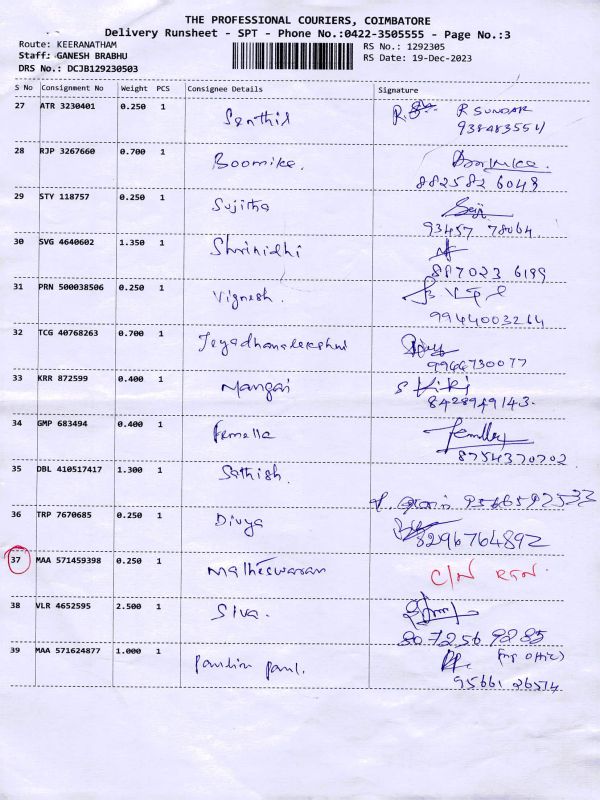 THE PROFESSIONAL COURIERS, COIMBATORE
Delivery Runsheet - SPT - Phone No.:0422-3505555 - Page No.:3
Route: KEERANATHAM
RS No.: 1292305
Staff: GANESH BRABHU
RS Date: 19-Dec-2023
DRS No.: DCJB129230503
S No Consignment No Weight PCS Consignee Details Signature
27 ATR 3230401 0.250 1 Senthil R SUNDAR
28 RJP 3267660 0.700 1 Boomika.
882582 6048
29 STY 118757 0.250 1 Sujitha
93457 78064
30 SVG 4640602 1.350 1 Shrinidhi
887023 6199
31 PRN 500038506 0.250 1 Vignesh.
9944003264
32 TCG 40768263 0.700 1
9944730077
33 KRR 872599 0.400 1 Mangai S Kiki
8428949143.
34 GMP 683494 0.400 1
8754370702
35 DBL 410517417 1.300 1 Sathish.
9566597533
36 TRP 7670685 0.250 1 Divya
8296764892
37 MAA 571459398 0.250 1 Matheswaran C/N RTN.
38 VLR 4652595 2.500 1 Siva.
807256 9285
39 MAA 571624877 1.000 1 Paulin Paul.
95661 26514